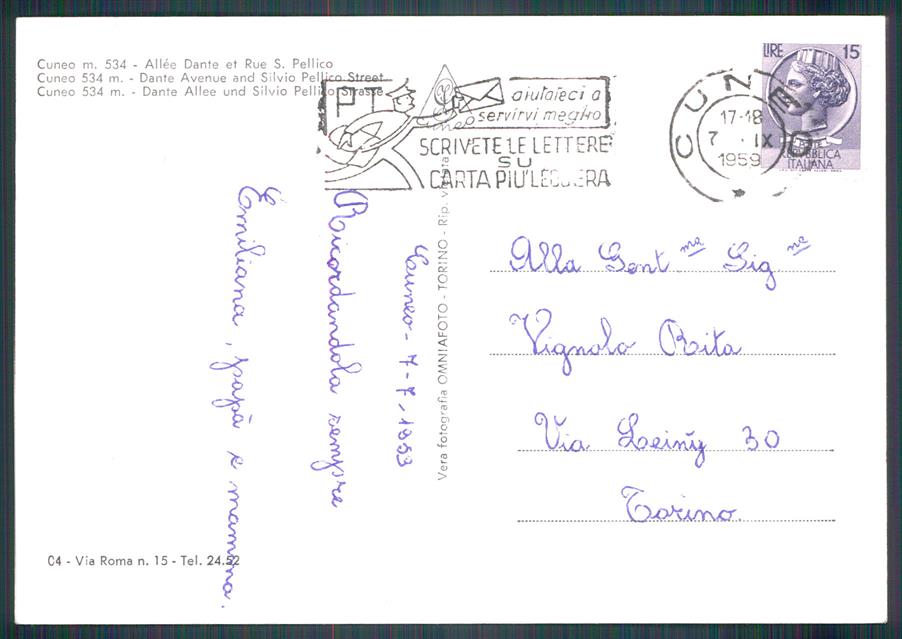 Cuneo m. 534 - Allée Dante et Rue S. Pellico
Cuneo 534 m. - Dante Avenue and Silvio Pellico Street
Cuneo 534 m. - Dante Allee und Silvio Pellico Strasse
PT
aiutateci a
servirvi meglio
SCRIVETE LE LETTERE
SU
CARTA PIU' LEGGERA
CUNEO
17-18
7 . IX
1959
LIRE 15
REPUBBLICA
ITALIANA
Cuneo - 7 - 7 - 1953
Ricordandola sempre
Emiliana, papà e mamma.
Vera fotografia OMNIAFOTO - TORINO - Rip. vietata
Alla Gent ma Sig na
Vignolo Rita
Via Leinÿ 30
Torino.
04 - Via Roma n. 15 - Tel. 24.52